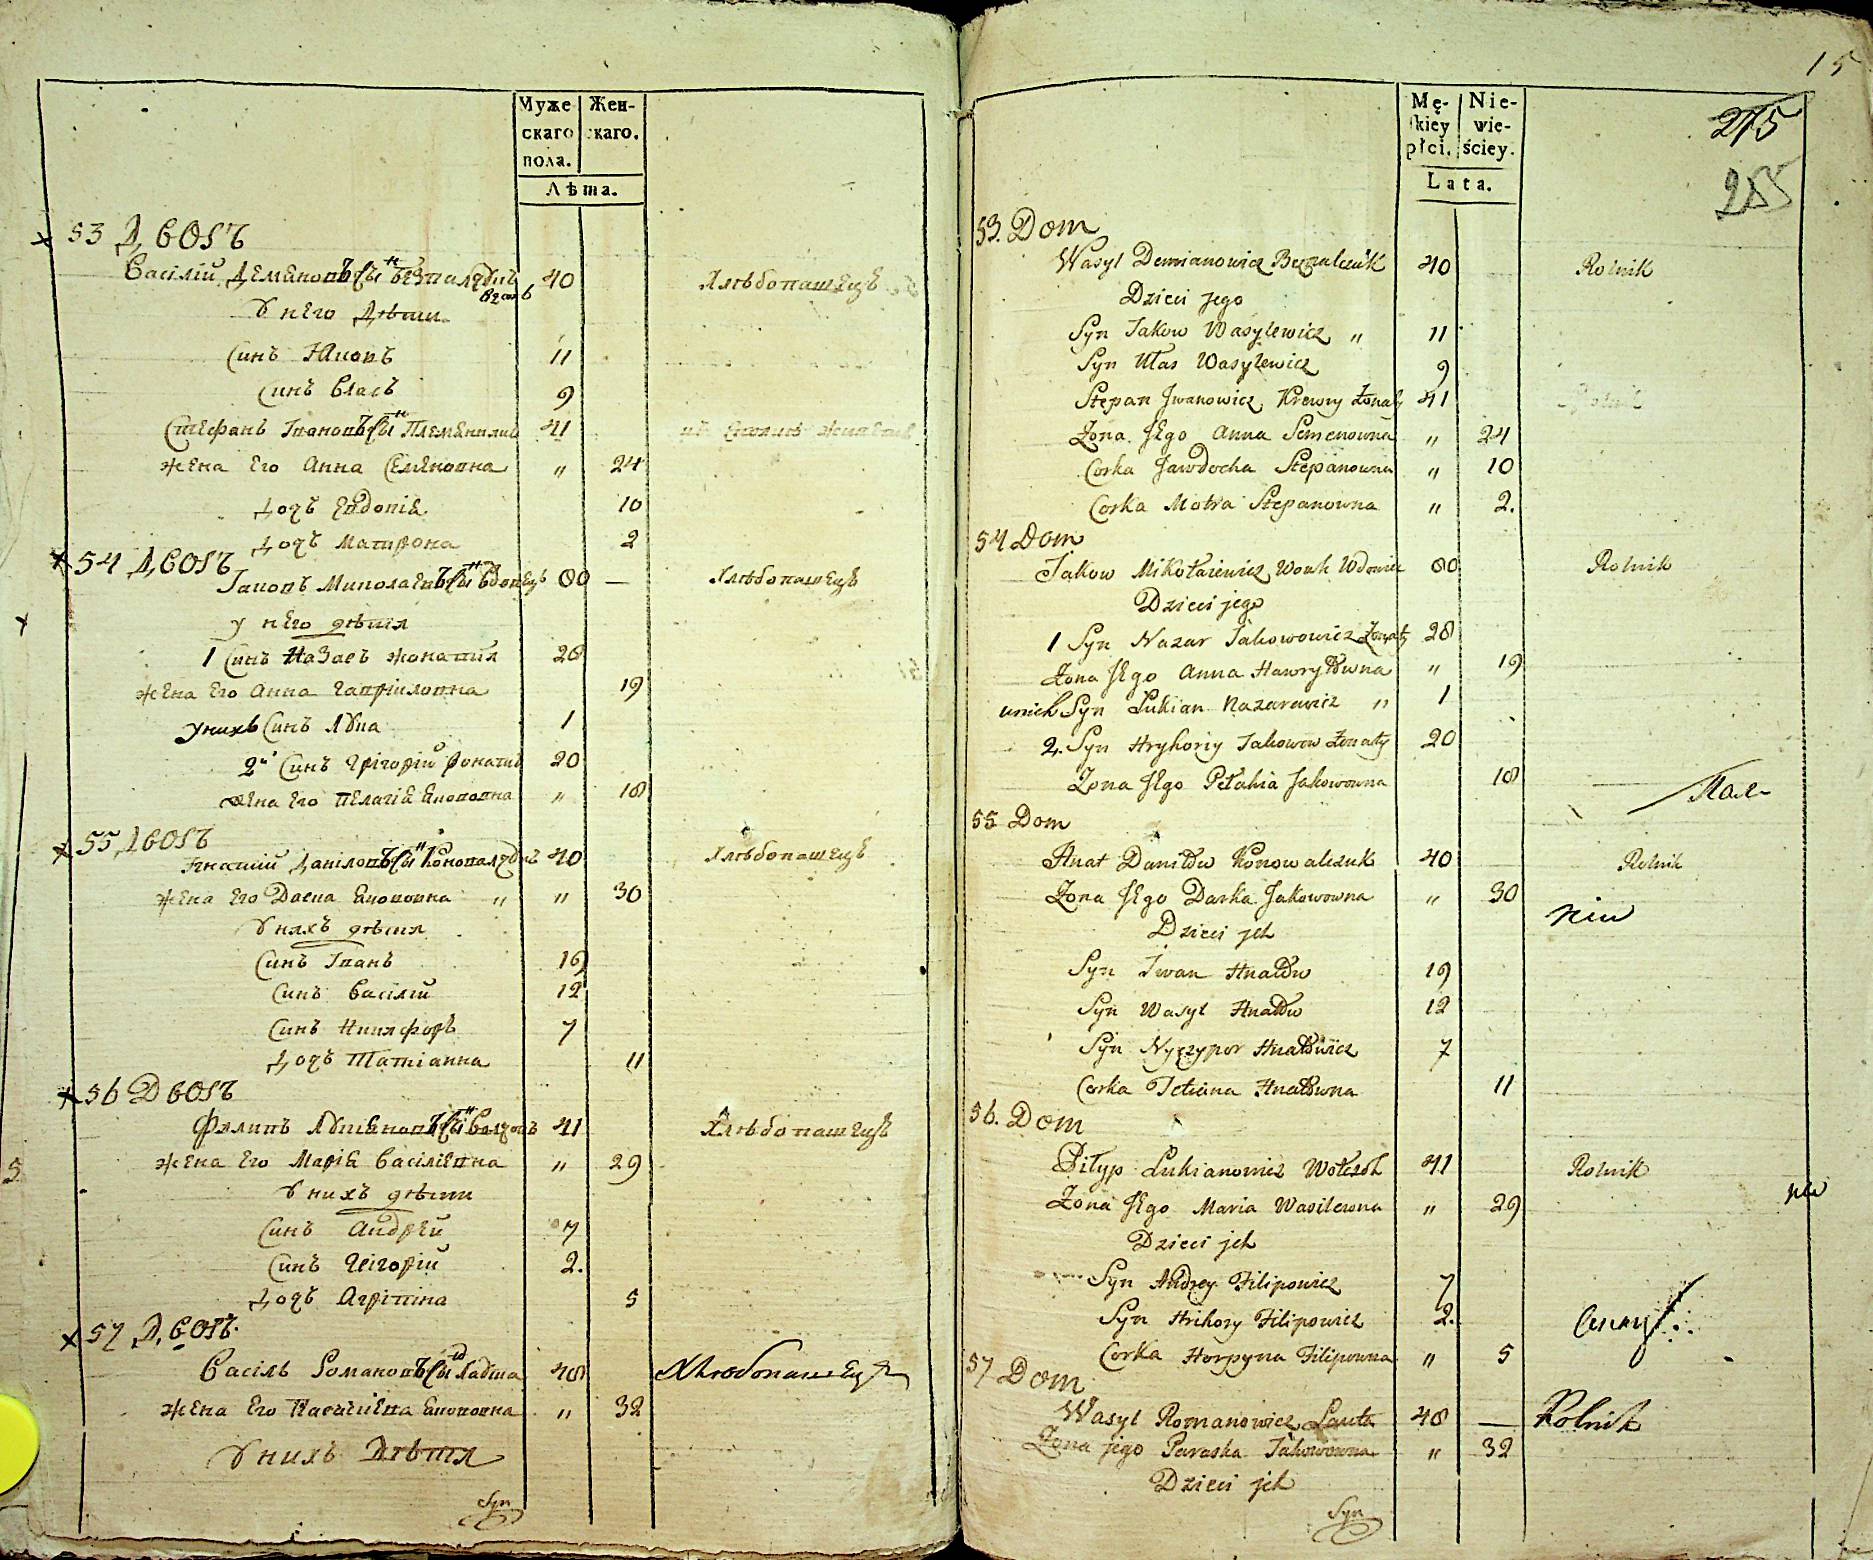 Муже
скаго
пола.
Жен-
скаго.
Лѣта.
53 Дворъ
Василій Деменовъ Сынъ 40 Хлѣбопашецъ
У него Дѣти
Синъ Яковъ 11
Синъ Власъ 9
Стефанъ Івановъ Сынъ Племянникъ 41
жена Его Анна Семеновна " 24
дочъ Евдокія 10
дочъ Матрона 2
54 Дворъ
Іаковъ Миколаевъ Сынъ Вдовецъ 60 — Хлѣбопашецъ
у него дѣтія
1 Синъ Назаръ жонатия 28
жена Его Анна Гавріиловна 19
у нихъ Синъ Лука 1
2й Синъ Грігорій жонатий 20
жена Его Пелагія Якововна " 18
55 Дворъ
Ігнатій Даніловъ Сынъ Коновалчукъ 40 Хлѣбопашецъ
жена Его Дарка Якововна " " 30
У няхъ дѣтия
Синъ Іванъ 19
Синъ Василій 12
Синъ Никифоръ 7
дочъ Татіанна 11
56 Дворъ
Филипъ Лукяновъ Сынъ 41 Хлѣбопашецъ
жена Его Марія Василіевна " 29
У нихъ дѣти
Синъ Андрей 7
Синъ Грігорій 2.
дочъ Агріпина 5
57 Дворъ
Василь Романовъ Сынъ Лавта 48 Хлѣбопашецъ
жена Его Параскевиа Якововна " 32
У нихъ Дѣтия
Syn
15
Mę-
skiey
płci.
Nie-
wie-
ściey.
Lata.
275
255
53. Dom
Wasyl Demianowicz Bezpalczuk 40 Rolnik
Dzieci jego
Syn Jakow Wasylewicz " 11
Syn Ułas Wasylewicz 9
Stepan Jwanowicz Krewny Żonaty 41
Żona Jego Anna Semenowna " 24
Corka Jawdocha Stepanowna " 10
Corka Motra Stepanowna " 2.
54 Dom
Jakow Mikołaiewicz Wouk Wdowiec 60 Rolnik
Dzieci jego
1 Syn Nazar Jakowowicz Żonaty 28
Żona Jego Anna Hawryłowna " 19
unich Syn Łukian Nazarewicz " 1
2. Syn Hryhoriy Jakowow Żonaty 20
Żona Jego Pełahia Jakowowna 18
55 Dom
Hnat Daniłow Konowalczuk 40 Rolnik
Żona Jego Darka Jakowowna " 30
Dzieci jch
Syn Jwan Hnatów 19
Syn Wasyl Hnatów 12
Syn Nyczypor Hnatowicz 7
Corka Tetiana Hnatowna 11
56. Dom
Piłyp Łukianowicz Wołczok 41 Rolnik
Żona Jego Maria Wasilewna " 29
Dzieci jch
Syn Andrey Filipowicz 7
Syn Hrihory Filipowicz 2.
Corka Horpyna Filipowna " 5
57 Dom
Wasyl Romanowicz Lauta 48 — Rolnik
Żona jego Paraska Jakowowna " 32
Dzieci jch
Syn